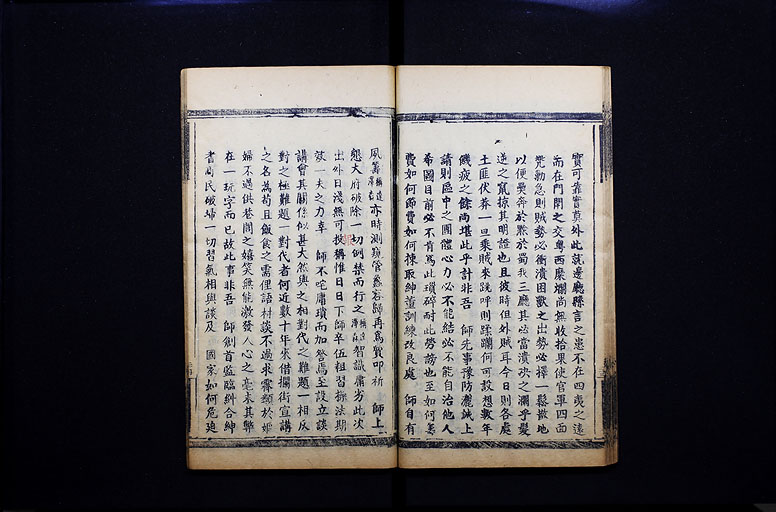 實可靠實莫外此就邊廳縣言之患不在四夷之遠
而在門閂之交粵西糜爛尚無收拾果使官軍四面
兜勦急則賊勢必衝潰困獸之出勢必擇一鬆散地
以便奭奔於黔於蜀我三廳其必當潰決之瀾乎髮
逆之竄掠其明證也且彼時但外賊耳今日則各處
土匪伏莽一旦乘賊來跳呼則蹂躪何可設想數年
饑疲之餘尚堪此乎計非吾 師先事豫防灑誠上
請則區中之團體心力必不能結必不能自治他人
希圖目前必不肯爲此瑣碎耐此勞謗也至如何籌
費如何節費如何揀取紳董訓練改良處 師自有
風籌 亦時測窺管蠡容歸再爲質叩祈 師上
懇大府破除一切例禁而行之 智識庸劣此次
出外日淺無可按稱惟日日下師卒伍粗習操法期
效一夫之力幸 師不咤庸瑣而加督焉至設立談
講會其關係似甚大然與之相對代之難題一相反
對之極難題一對代者何近數十年來借攔街宣講
之名爲苟且飯食之需俚語村談不過求霽顏於婦
婦不過供巷閭之嬉笑無能激發人心之毫末其弊
在一玩字而已故此事非吾 師創首監臨糾合紳
耆商民破掃一切習氣相與談及 國家如何危迫